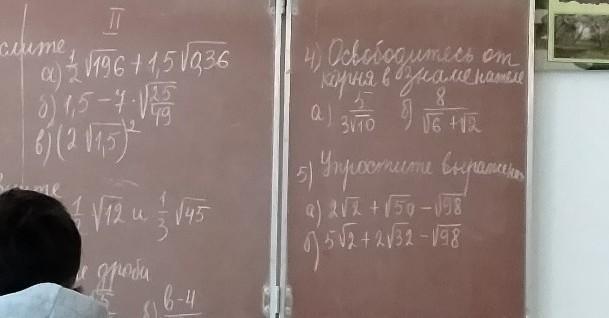 II
а) 1/2 √196 + 1,5 √0,36
б) 1,5 - 7 · √25/49
в) (2 √1,5)²
√12 и 1/3 √45
дроби
б) в-4
4) Освободитесь от
корня в знаменателе
а) 5/3√10 б) 8/√6 + √2
5) Упростите выражения
а) 2√2 + √50 - √98
б) 5√2 + 2√32 - √98